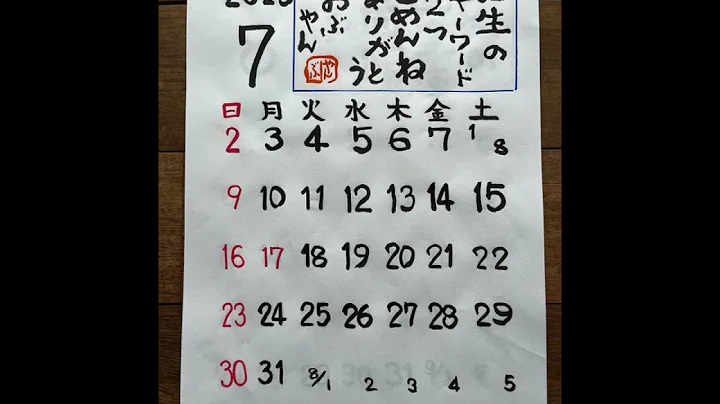 2023
7
生の
キーワード
2つ
ごめんね
ありがとう
おぶ
やん
日 月 火 水 木 金 土
2 3 4 5 6 7 1 8
9 10 11 12 13 14 15
16 17 18 19 20 21 22
23 24 25 26 27 28 29
30 31 8/1 2 3 4 5